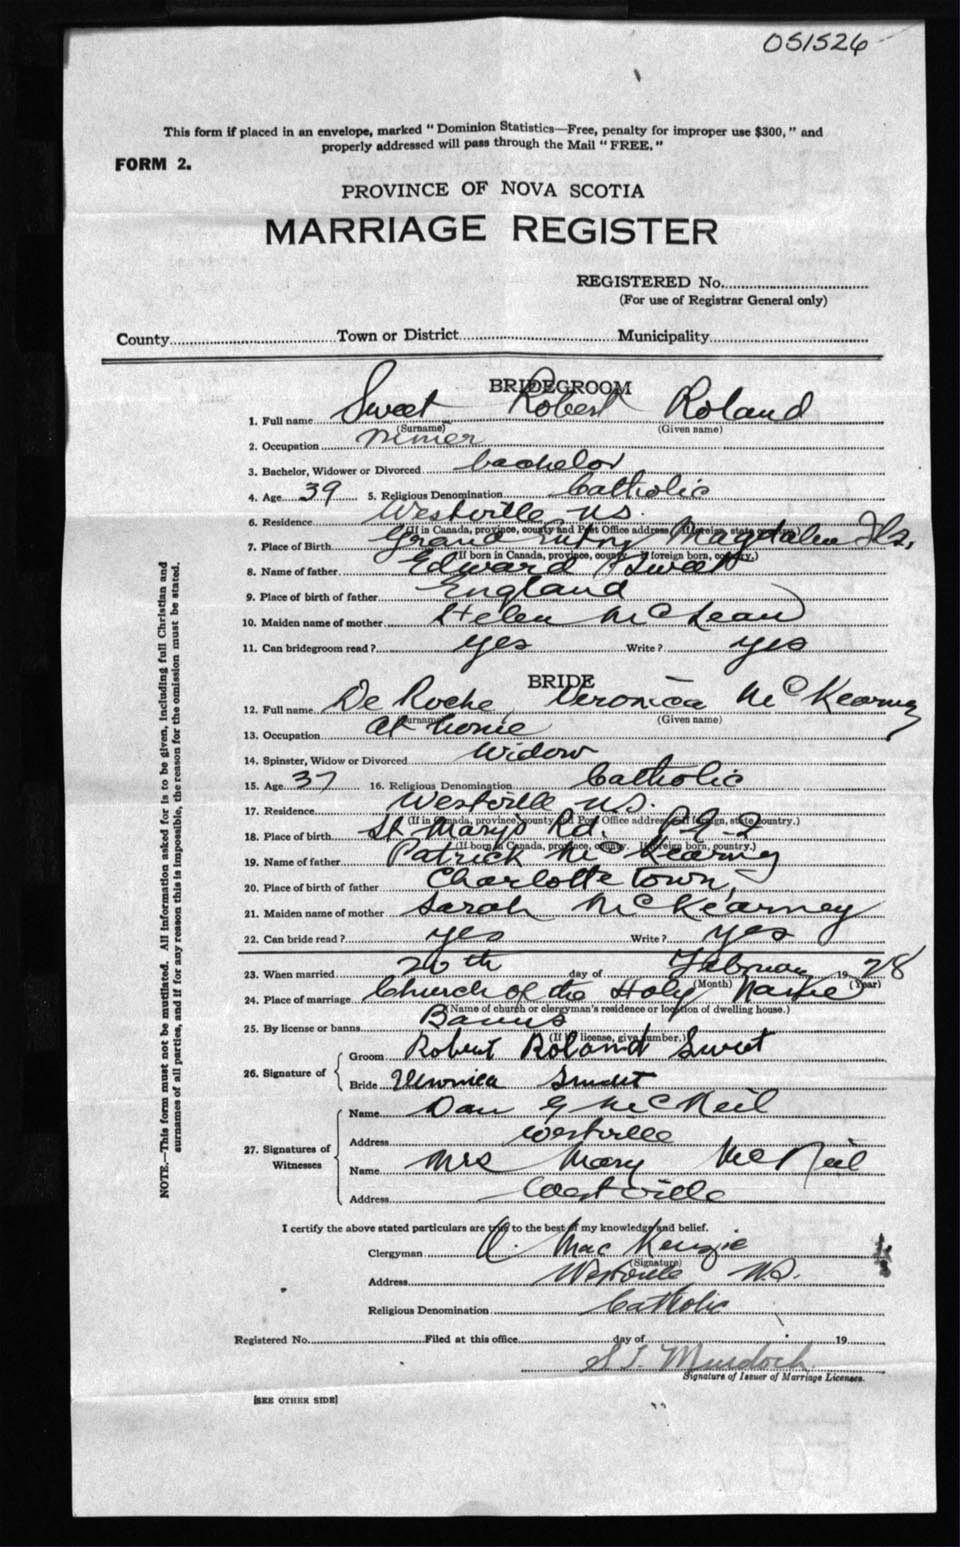 051526
This form if placed in an envelope, marked "Dominion Statistics—Free, penalty for improper use $300," and
properly addressed will pass through the Mail "FREE."
FORM 2.
PROVINCE OF NOVA SCOTIA
MARRIAGE REGISTER
REGISTERED No.
(For use of Registrar General only)
County Town or District Municipality
BRIDEGROOM
1. Full name Sweet Robert Roland
(Surname) (Given name)
2. Occupation Miner
3. Bachelor, Widower or Divorced bachelor
4. Age 39 5. Religious Denomination Catholic
6. Residence Westville N.S.
(If in Canada, province, county and Post Office address. If foreign, state country.)
7. Place of Birth Grand Magdalen Ils,
(If born in Canada, province, county. If foreign born, country.)
8. Name of father Edward Sweet
9. Place of birth of father England
10. Maiden name of mother Helen McLean
11. Can bridegroom read? yes Write? yes
BRIDE
12. Full name De Roche, Veronica McKearney
(Surname) (Given name)
13. Occupation at home
14. Spinster, Widow or Divorced Widow
15. Age 37 16. Religious Denomination Catholic
17. Residence Westville N.S.
(If in Canada, province, county and Post Office address. If foreign, state country.)
18. Place of birth St Mary's Rd. P.E.I
(If born in Canada, province, county. If foreign born, country.)
19. Name of father Patrick McKearney
20. Place of birth of father Charlottetown,
21. Maiden name of mother Sarah McKearney
22. Can bride read? yes Write? yes
23. When married 20th day of February 1928
(Month) (Year)
24. Place of marriage Church of the Holy Name
(Name of church or clergyman's residence or location of dwelling house.)
25. By license or banns Banns
(If by license, give number.)
26. Signature of Groom Robert Roland Sweet
Bride Veronica Sweet
27. Signatures of Witnesses
Name Dan G McNeil
Address Westville
Name Mrs Mary McNeil
Address Westville
I certify the above stated particulars are true to the best of my knowledge and belief.
Clergyman MacKenzie
(Signature)
Address Westville N.S.
Religious Denomination Catholic
Registered No. Filed at this office day of 19
S I Murdoch
Signature of Issuer of Marriage Licenses.
[SEE OTHER SIDE]
NOTE.—This form must not be mutilated. All information asked for is to be given, including full Christian and
surnames of all parties, and if for any reason this is impossible, the reason for the omission must be stated.